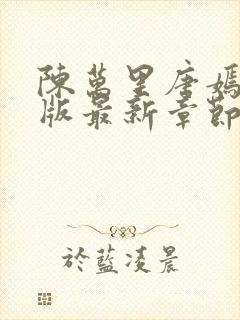 陳萬里唐嫣
版最新章節
於藍凌晨